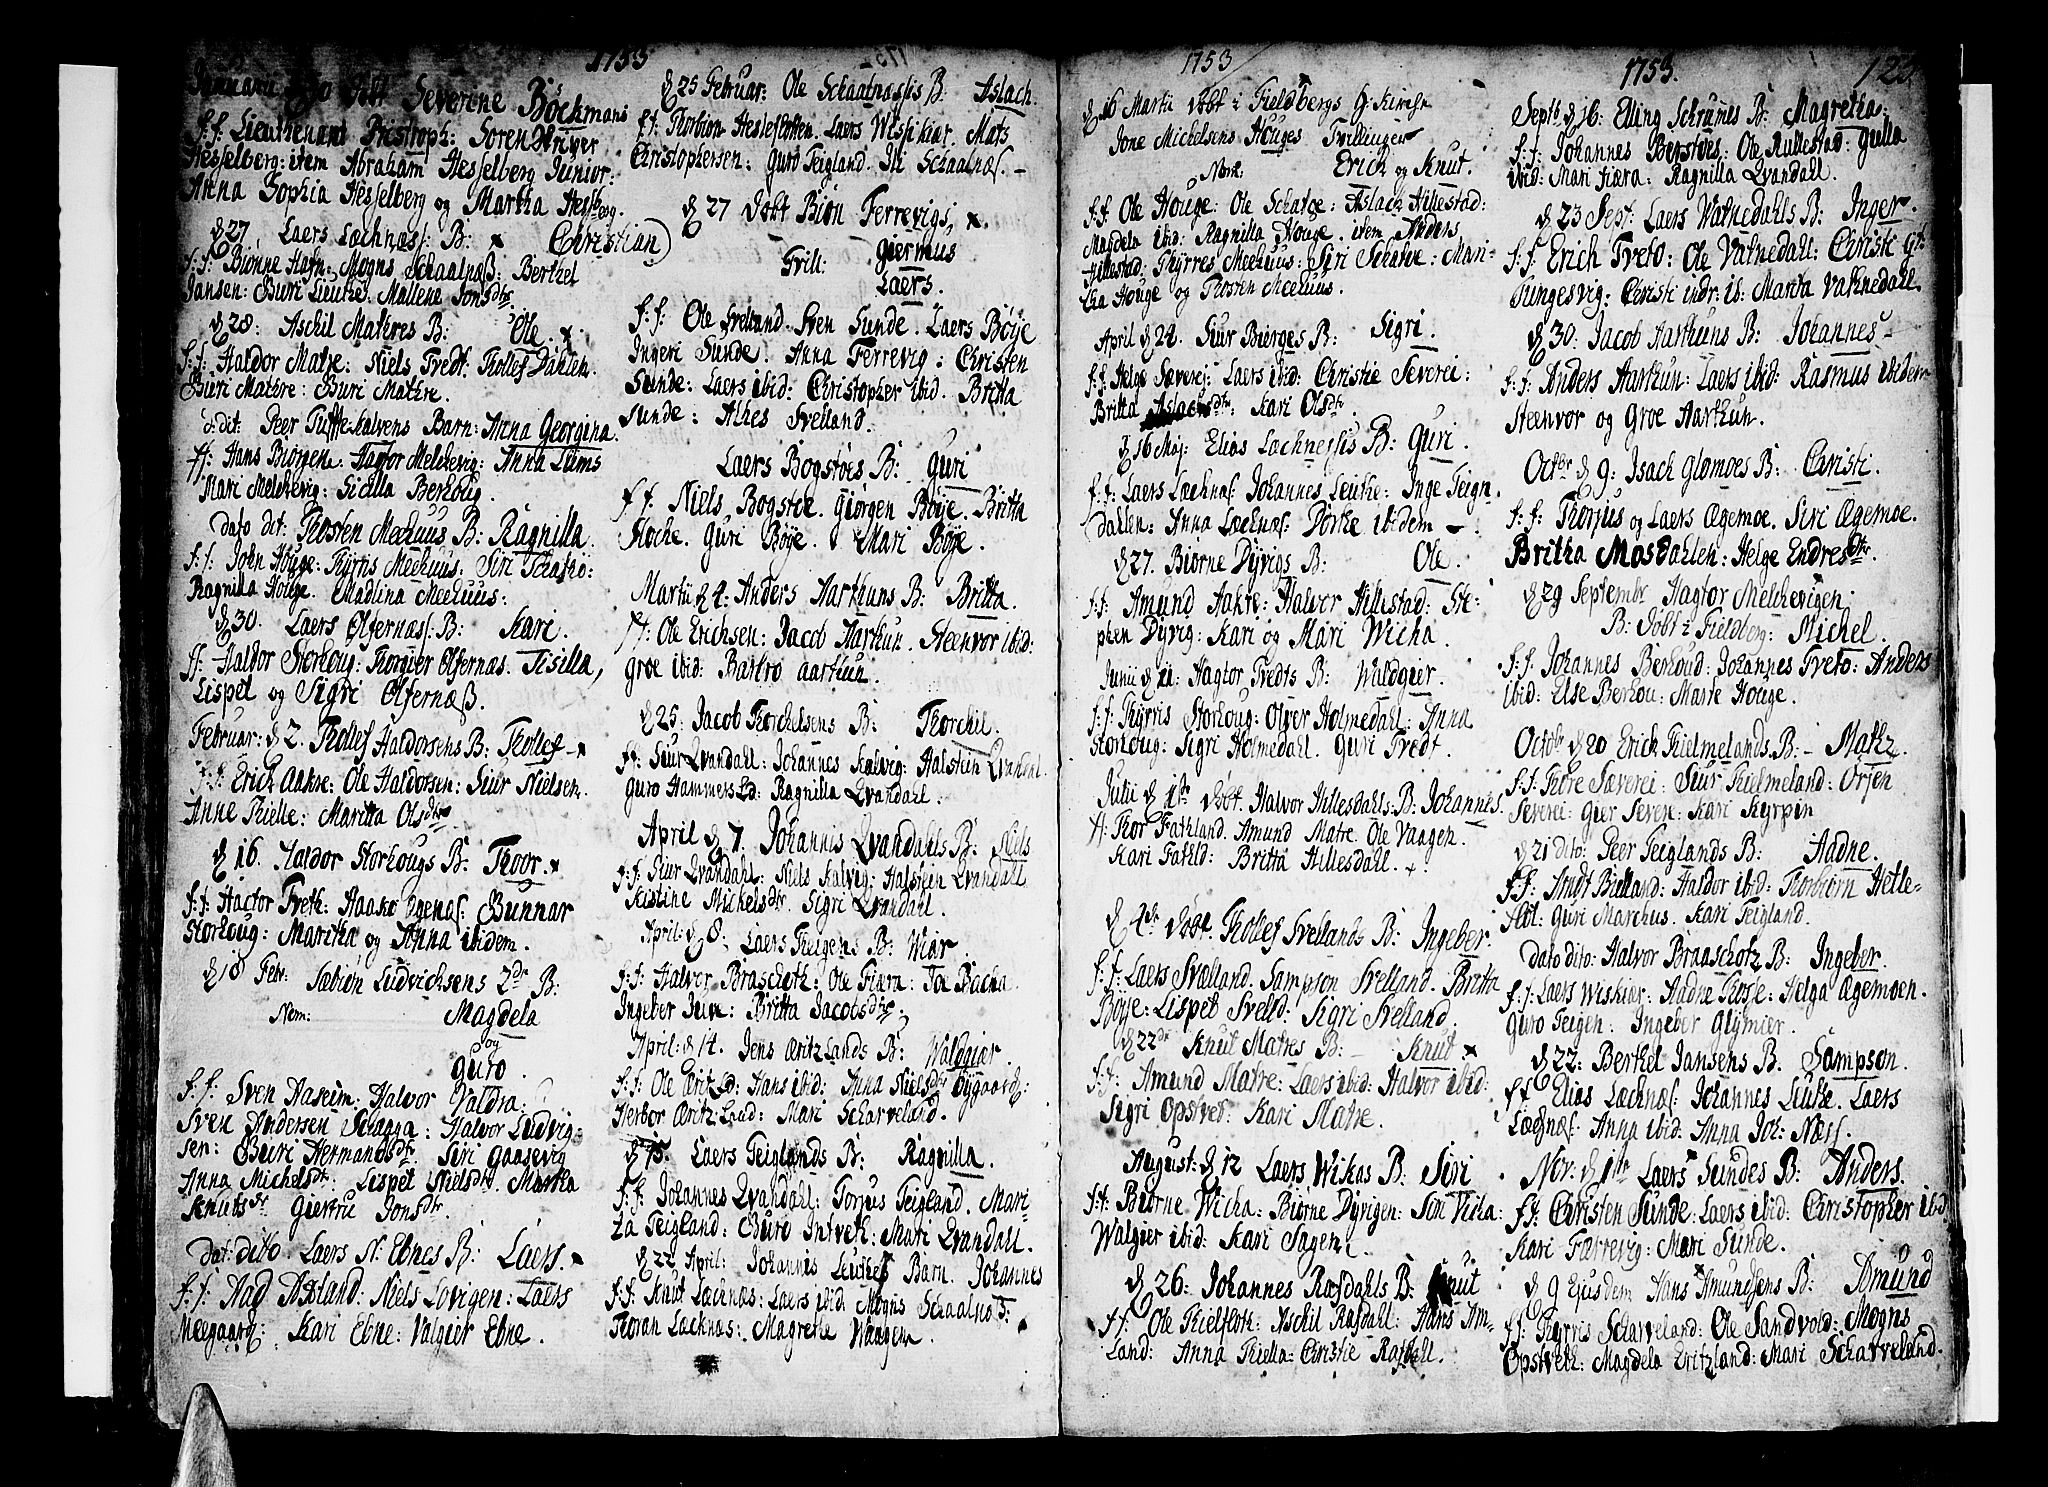 1753
Severene Böckmans
f:f: Lieuthenant Pristroph: Soren Striver
Hesselberg: item Abraham Hesselberg Junior:
Anna Sophia Hesselberg og Martha Hesselberg.
d 27 Laers Lochnæs: B: Christian
f:f: Biønne Hafn: Mogns Schaalnæs: Berthel
Jansen: Buri Leuthe. Mallene Jonsdtr
d 28: Aschil Mathres B: Ole.
f:f: Haldor Matre: Niels Tvedt: Thollef Dahlen.
Buri Mathre: Buri Mathre.
d: dit: Peer Tufftehalvens Barn: Anna Georgina.
ff: Hans Biørsen: Hagtor Melchevig: Anna Lams
Mari Melchevig: Sicilla Berhoug.
dato dit: Thosten Meehuus B: Ragnilla.
f:f: John Houge: Thyris Meehuus: Siri
Ragnilla Houge. Madlina Meehuus:
d 30. Laers Olfernæs: B: Kari.
ff: Haldor Storhoug: Thorgier Olfernæs. Tisilla,
Lispet og Sigri Olfernæs.
Februar: d 2. Thollef Haldorsens B: Thollef
f:f: Erich Aakre: Ole Haldorsen: Siur Nielsen.
Anne Thielle: Maritta Olsdtr
d 16. Haldor Storhougs B: Thoor.
f:f: Hactor Tveth: Haako Egenæs: Gunnar
Storhoug: Maritha og Anna ibidem.
d 18 Febr: Sæbiön Ludvichsens 2de B:
Nem: Magdela
og
Guro.
f:f: Sven Haseim: Halvor Valdra:
Sven Andersen Schagga: Halvor Ludvig-
sen: Buri Hermansdtr: Siri Gaasevig
Anna Michelsdtr: Lispet Nielsdtr: Martha
Knutsdtr Giertru Jonsdtr.
dat: dito. Laers N: Ebnes B: Laers.
f:f: Aad Assland: Niels Lovigen: Laers
Meegaard: Kari Ebne: Valgier Ebne.
d 25 Februar: Ole Schaalnæssis B: Aslach:
f:f: Thorbiön Hetlesletten. Laers Wishiær. Mats
Christophersen: Guro Teigland. Schaalnæs.
d 27 döbt Biön Ferrevigs
Trill: Giermus
Laers.
f:f: Ole Svelland. Sven Sunde. Laers Böije
Ingeri Sunde. Anna Ferrevig: Christen
Sunde: Laers ibid: Christopher ibid. Britta
Sunde: Athes Svelland.
Laers Bogstöes B: Guri
f:f: Niels Bogstöe. Giörgen Böije. Britta
Floche. Guri Böije. Mari Böije.
Martii d 4: Anders Aarthuns B: Britta.
ff: Ole Erichsen: Jacob Aarthun. Steenvor ibid:
Groe ibid: Bastro aarthun.
d 25: Jacob Thorchelsens B: Thorchil.
ff: Siur Qvandahl: Johannes Kalvig: Halstein Qvandahl.
Guro Hammersld: Ragnilla Qvandahl.
April d 7. Johannis Qvandahls B: Niels
f:f: Siur Qvandahl: Niels Kalvig: Halsteen Qvandall
Kistine Michelsdtr. Sigri Qvandahl.
April: d 8: Laers Theigens B: Wiar
f:f: Halvor Braschoth: Ole Fiæra: Bacha.
Ingeber Juve: Britta Jacobsdtr:
April: d 14. Jens Æritzlands B: Waldgiær.
f:f: Ole Æritzld: Hans ibid: Anna Nielsdtr Öygaard:
Herbor Æritzland: Mari Scharveland.
d 15. Laers Teiglands B: Ragnilla.
f:f: Johannes Qvandahl: Torpus Teigland. Mari-
za Teigland: Guro Intveth: Mari Qvandall.
d 22 April: Johannis Leuthes Barn. Johannes
f:f: Knut Læchnæs: Laers ibid. Mogns Schaalnæs:
Thoran Læchnæs: Magrethe Waagen.
1753
d 16 Martii döbt i Fieldbergs H: Kirche
Jone Michelsens Houges Tvillinger
Nom: Erich og Knut.
f:f Ole Houge: Ole Schatøe: Aslach Hillestad:
Magdela ibid: Ragnilla Houge. item Anders
Hillestad: Thyrres Meehuus: Siri Schatøe: Mari-
tha Houge og Thosten Meehuus.
April d 22. Siur Bierges B: Sigri.
f:f: Helge Sæverei: Laers ibid: Christie Severei:
Britta Aslachsdtr: Kari Olsdtr.
d 16 Maj: Elias Lochnessis B: Guri.
f:f: Laers Læchnæs: Johannes Leuthe: Inge Teign.
Dahlen: Anna Læchnæs: Dorthe ibidem
d 27. Biørne Dyvigs B: Ole.
f:f: Amund Aakre: Halvor Hillestad: Ste-
phen Dyvig: Kari og Mari Wicha.
Junii d 11: Hagtor Tvedts B: Waldgier.
f:f: Thyrris Storhoug: Olver Holmedahl: Anna
Storhoug: Sigri Holmedahl. Guri Tvedt.
Julii d 1te döbt. Halvor Hillesdahls: B: Johannes.
ff: Thor Fathland. Amund Matre. Ole Vaagen.
Kari Fathld: Britta Hillesdahl.
d 4de döbt. Thollef Svellands B: Ingeber.
f:f: Laers Svelland. Sampson Svelland. Britta
Böije: Lispet Svelld: Sigri Svelland.
d 22de Knut Matres B: Knut
f:f: Amund Matre: Laers ibid: Halvor ibid:
Sigri Opstvet: Kari Matre.
August: d 12 Laers Wikas B: Siri
f:f: Biørne Wicha: Biørne Dyvigen: Sön Vicha:
Walgier ibid: Kari Sageni.
d 26: Johannes Ræfsdahls B: Knut
ff: Ole Thielfloth: Aschil Rafsdahl: Hans Am-
Land: Anna Thiella: Christie Rafsdall.
1753. 123.
Septb d 16: Elling Schrumes B: Magretha:
f:f: Johannes Berstøes: Ole Rullestad: Gulla
ibid: Mari Fiæra: Ragnilla Qvandahl.
d 23 Sept: Laers Vathnedahls B: Inger.
f:f Erich Tveto: Ole Vathnedahl: Christi
Tungesvig: Christi indr: ib: Marita Vathnedahl
d 30: Jacob Aarthuns B: Johannes
f:f: Anders Aarthun: Laers ibid: Rasmus ibidem
Steenvor og Groe Aarthun.
Octbr d 9: Isach Glomoes B: Christi.
f:f: Thorjus og Laers Ægemoe. Siri Ægemoe.
Britha Mosdahlen: Helge Endresdtr
d 29 Septembr Hagtor Melchevigen:
B: döbt i Fieldberg: Michel.
f:f: Johannes Berhoud: Johannes Tveto: Anders
ibid: Else Berhou: Marre Houge.
Octobr d 20 Erich Thielmelands B: Mathz.
f:f: Thore Sæverei: Siur Thielmeland: Örjen
Severei: Gier Seven: Kari Kyrpin
d 21 dito: Peer Teiglands B: Aadne.
ff: Arndt Balland: Haldor ibid: Thorbiörn Hetle-
flot: Guri Marchus. Kari Teigland.
dato dito: Halvor Braaschotz B: Ingeber.
f:f: Laers Wiskiær: Aadne Thosse: Helga Ægemoen.
Guro Teigen: Ingeber Glymier.
d 22: Berthel Jansens B. Sampson.
ff Elias Læchnæs: Johannes Leuthe. Laers
Læchnæs: Anna ibid: Anna Joh: Næss.
Nov: d 1te Laers Sundes B: Anders.
ff: Christen Sunde: Laers ibid: Christopher ibid
Kari Færrevig: Mari Sunde.
d 9 Ejusdem Hans Amundsens B: Amund
ff: Thyrris Scharveland: Ole Sandvold: Mogns
Opstveth: Magdela Eritzland: Mari Scharveland.